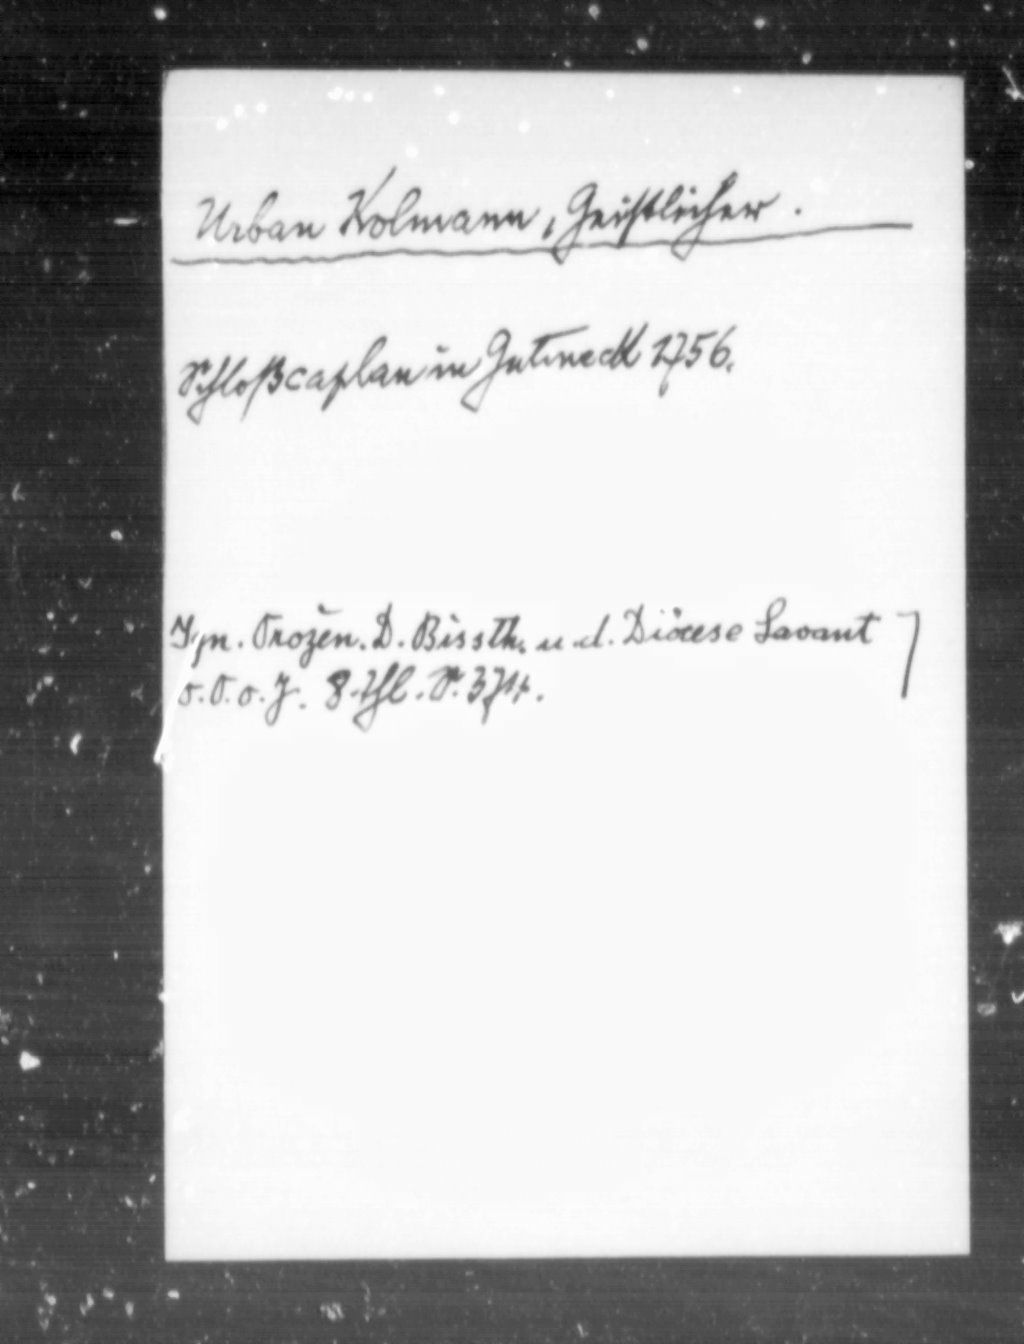 Urban Kolmann, Geistlicher.
Schloßcaplan in Guteneck 1756.
Ign. Orožen. D. Bissth. u. d. Diöcese Lavant
o. O. o. J. 8. Thl. S. 374.